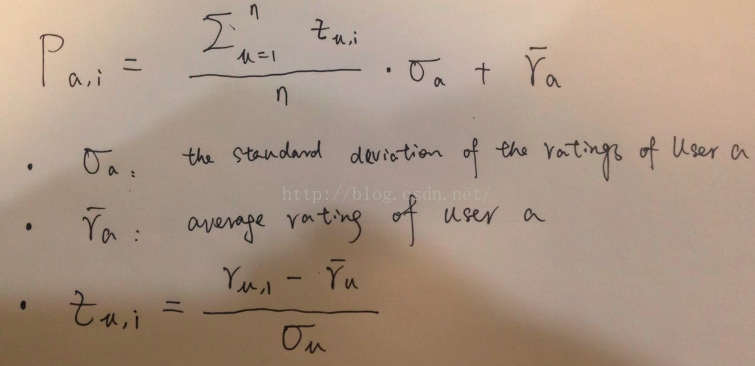 P_{a,i} = \frac{\sum_{u=1}^{n} z_{u,i}}{n} \cdot \sigma_a + \bar{r}_a
• σ_a : the standard deviation of the ratings of User a
http://blog.csdn.net/
• \bar{r}_a : average rating of user a
• z_{u,i} = \frac{r_{u,1} - \bar{r}_u}{\sigma_u}